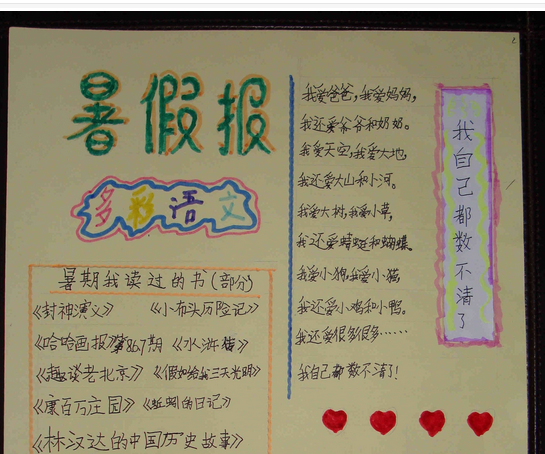 暑假报
多彩语文
暑期我读过的书(部分)
《封神演义》 《小布头历险记》
《哈哈画报》 《水浒传》
《趣谈老北京》 《假如给我三天光明》
《康百万庄园》 《蚯蚓的日记》
《林汉达的中国历史故事》
我爱爸爸,我爱妈妈,
我还爱爷爷和奶奶。
我爱天空,我爱大地,
我还爱大山和小河。
我爱大树,我爱小草,
我还爱蜻蜓和蝴蝶。
我爱小狗,我爱小猫,
我还爱小鸡和小鸭。
我还爱很多很多……
我自己都数不清了!
我自己都数不清了